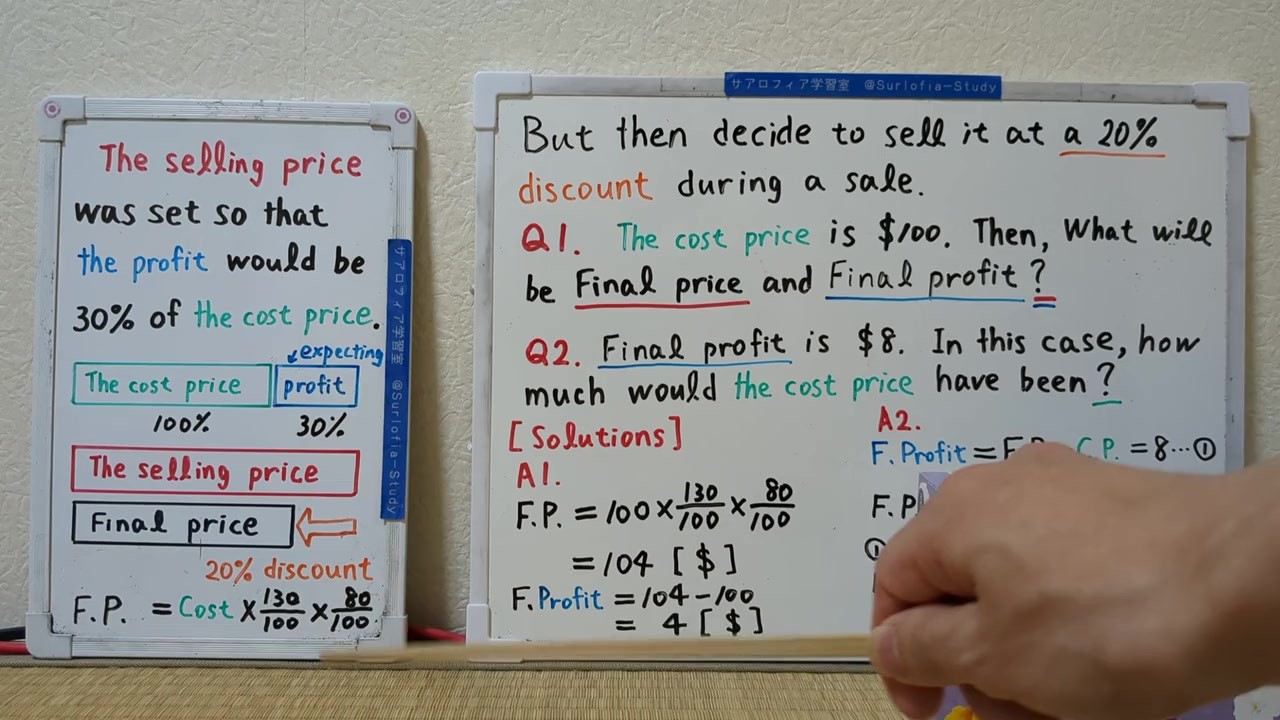 The selling price
was set so that
the profit would be
30% of the cost price.
expecting
The cost price profit
100% 30%
The selling price
Final price
20% discount
F.P. = Cost × 130/100 × 80/100
サアロフィア学習室 @Surlofia-Study
サアロフィア学習室 @Surlofia-Study
But then decide to sell it at a 20%
discount during a sale.
Q1. The cost price is $100. Then, What will
be Final price and Final profit?
Q2. Final profit is $8. In this case, how
much would the cost price have been?
[Solutions]
A1.
F.P. = 100 × 130/100 × 80/100
= 104 [$]
F.Profit = 104 - 100
= 4 [$]
A2.
F.Profit = C.P. = 8 … ①
F.P
①